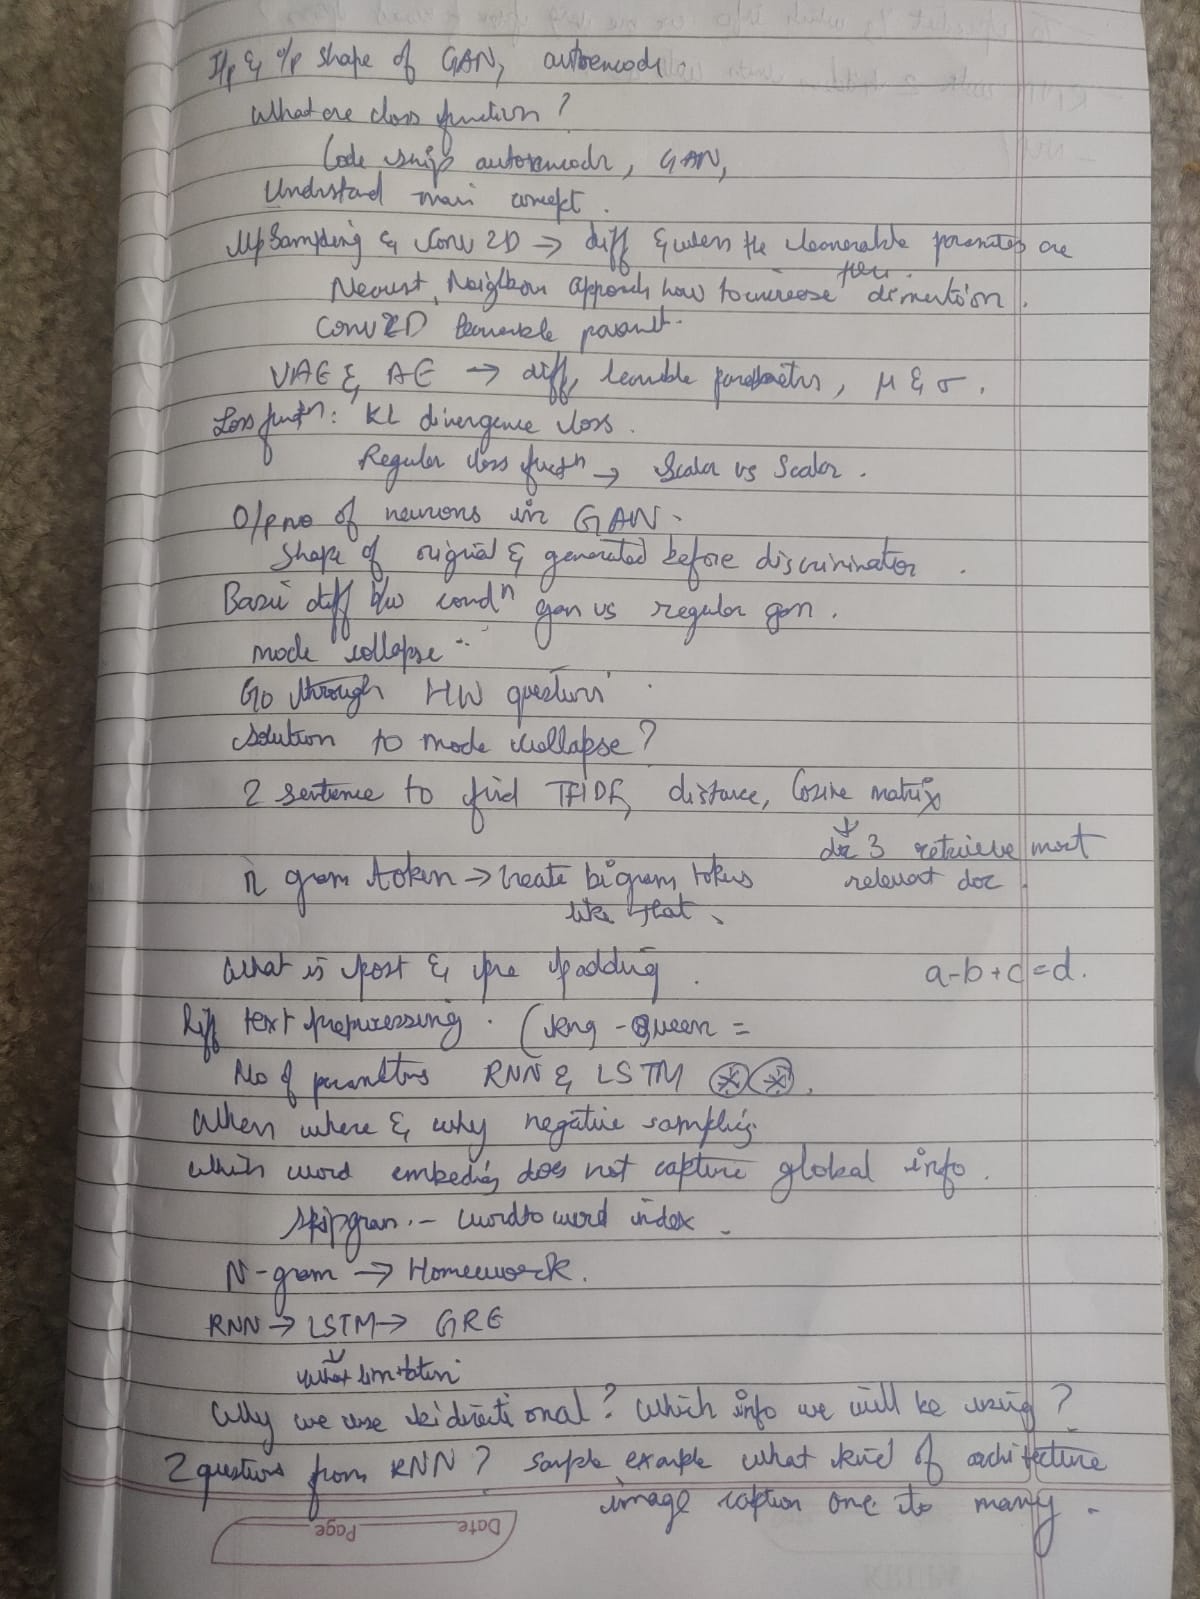 I/p & o/p shape of GAN, autoencode.
What are loss function?
Code snip autoencodr, GAN,
Understand main concept.
Up Sampling & Conv 2D → diff & when the learnerable paramters are
Nearest, Neighbour approach how to increase dimention.
Conv2D learnerable paramt.
VAE & AE → diff, learnble parametrs, μ & σ.
Loss functn: KL divergence loss.
Regular loss functn → Scalar vs Scalar.
O/p no of neurons in GAN.
Shape of original & generated before discriminator.
Basic diff b/w condn gan vs regular gan.
mode collapse
Go through HW questions
Solution to mode collapse?
2 sentence to find TFIDF, distance, Cosine matrix
↓
3 retrieve most
n gram token → create bigram tokens relevant doc.
like that.
What is post & pre padding. a-b+c=d.
Diff text preprocessing. (King - Queen =
No of parameters RNN & LSTM
When where & why negative sampling
Which word embeding does not capture global info.
Skipgram. - word to word index.
N-gram → Homework.
RNN → LSTM → GRE
↓
what limitation
Why we use bidirectional? Which info we will be using?
2 questions from RNN? Sample example what kind of architecture
image caption one to many.
Page Date